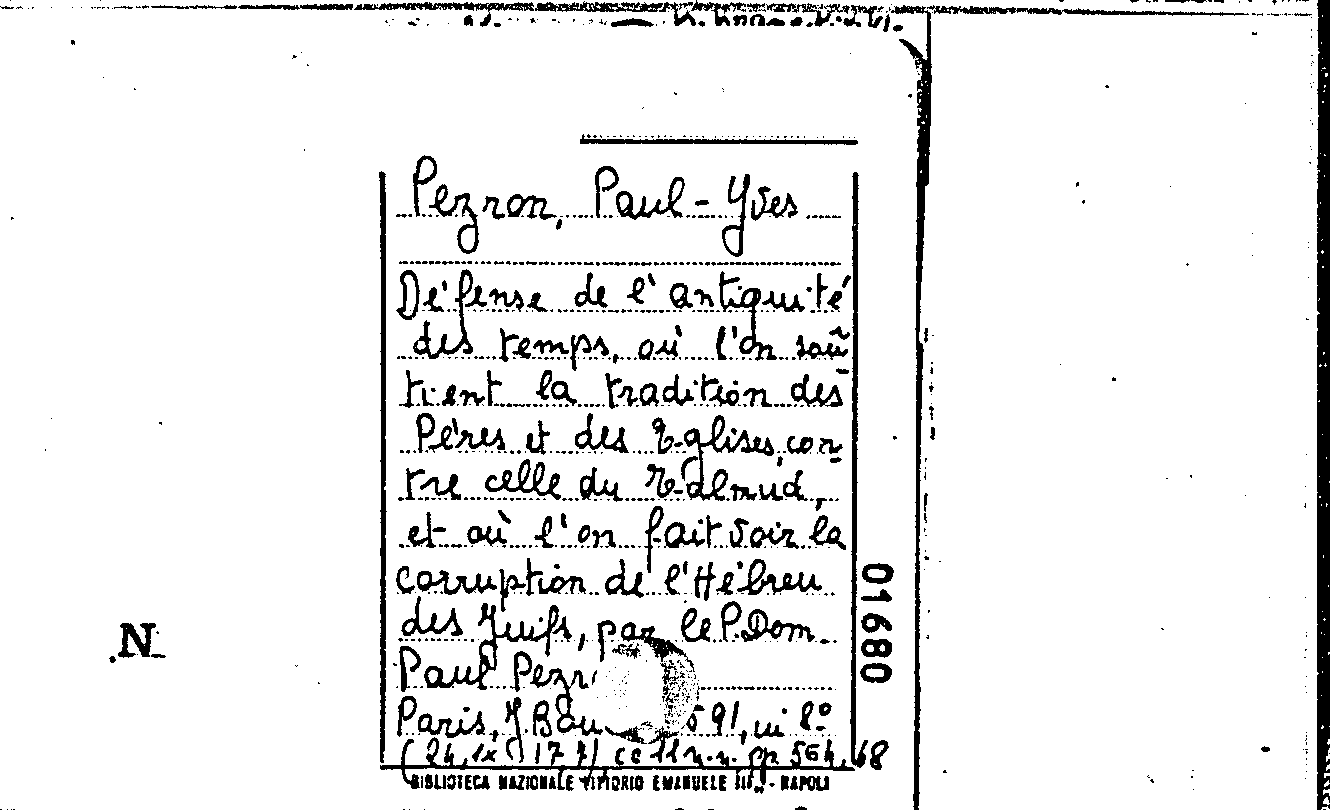 Pezron, Paul-Yves
Défense de l'antiquité
des temps, où l'on soû
tient la tradition des
Pères et des Eglises, con-
tre celle du Talmud,
et où l'on fait voir la
corruption de l'Hébreu
des Juifs, par le P. Dom.
Paul Pezr
Paris, J. Bou 91, in 8º
cc 11 n.n. pp 564, 68
BIBLIOTECA NAZIONALE VITTORIO EMANUELE III - NAPOLI
01680
N